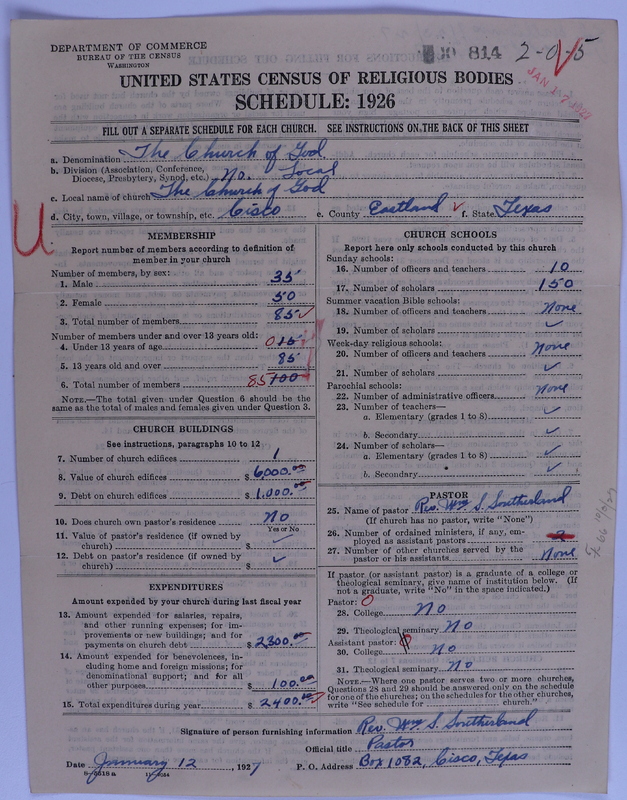 DEPARTMENT OF COMMERCE
BUREAU OF THE CENSUS
WASHINGTON
814 2-0-5
UNITED STATES CENSUS OF RELIGIOUS BODIES
SCHEDULE: 1926
FILL OUT A SEPARATE SCHEDULE FOR EACH CHURCH. SEE INSTRUCTIONS ON THE BACK OF THIS SHEET
a. Denomination The Church of God
b. Division (Association, Conference, Diocese, Presbytery, Synod, etc.) No. Local
c. Local name of church The Church of God
d. City, town, village, or township, etc. Cisco e. County Eastland f. State Texas
U
MEMBERSHIP
Report number of members according to definition of member in your church
Number of members, by sex:
1. Male 35
2. Female 50
3. Total number of members 85
Number of members under and over 13 years old:
4. Under 13 years of age 0 15
5. 13 years old and over 85
6. Total number of members 85 100
NOTE.—The total given under Question 6 should be the same as the total of males and females given under Question 3.
CHURCH BUILDINGS
See instructions, paragraphs 10 to 12
7. Number of church edifices 1
8. Value of church edifices $ 6,000.00
9. Debt on church edifices $ 1,000.00
10. Does church own pastor's residence No
Yes or No
11. Value of pastor's residence (if owned by church) $
12. Debt on pastor's residence (if owned by church) $
EXPENDITURES
Amount expended by your church during last fiscal year
13. Amount expended for salaries, repairs, and other running expenses; for improvements or new buildings; and for payments on church debt $ 2300.00
14. Amount expended for benevolences, including home and foreign missions; for denominational support; and for all other purposes $ 100.00
15. Total expenditures during year $ 2400.00
CHURCH SCHOOLS
Report here only schools conducted by this church
Sunday schools:
16. Number of officers and teachers 10
17. Number of scholars 150
Summer vacation Bible schools:
18. Number of officers and teachers None
19. Number of scholars
Week-day religious schools:
20. Number of officers and teachers None
21. Number of scholars
Parochial schools:
22. Number of administrative officers None
23. Number of teachers—
a. Elementary (grades 1 to 8)
b. Secondary
24. Number of scholars—
a. Elementary (grades 1 to 8)
b. Secondary
PASTOR
25. Name of pastor Rev. Wm S. Southerland
(If church has no pastor, write "None")
26. Number of ordained ministers, if any, employed as assistant pastors
27. Number of other churches served by the pastor or his assistants None
If pastor (or assistant pastor) is a graduate of a college or theological seminary, give name of institution below. (If not a graduate, write "No" in the space indicated.)
Pastor: 0
28. College No
29. Theological seminary No
Assistant pastor:
30. College No
31. Theological seminary No
NOTE.—Where one pastor serves two or more churches, Questions 28 and 29 should be answered only on the schedule for one of the churches; on the schedules for the other churches, write "See schedule for church."
Signature of person furnishing information Rev. Wm S. Southerland
Official title Pastor
Date January 12, 1927 P. O. Address Box 1082, Cisco, Texas